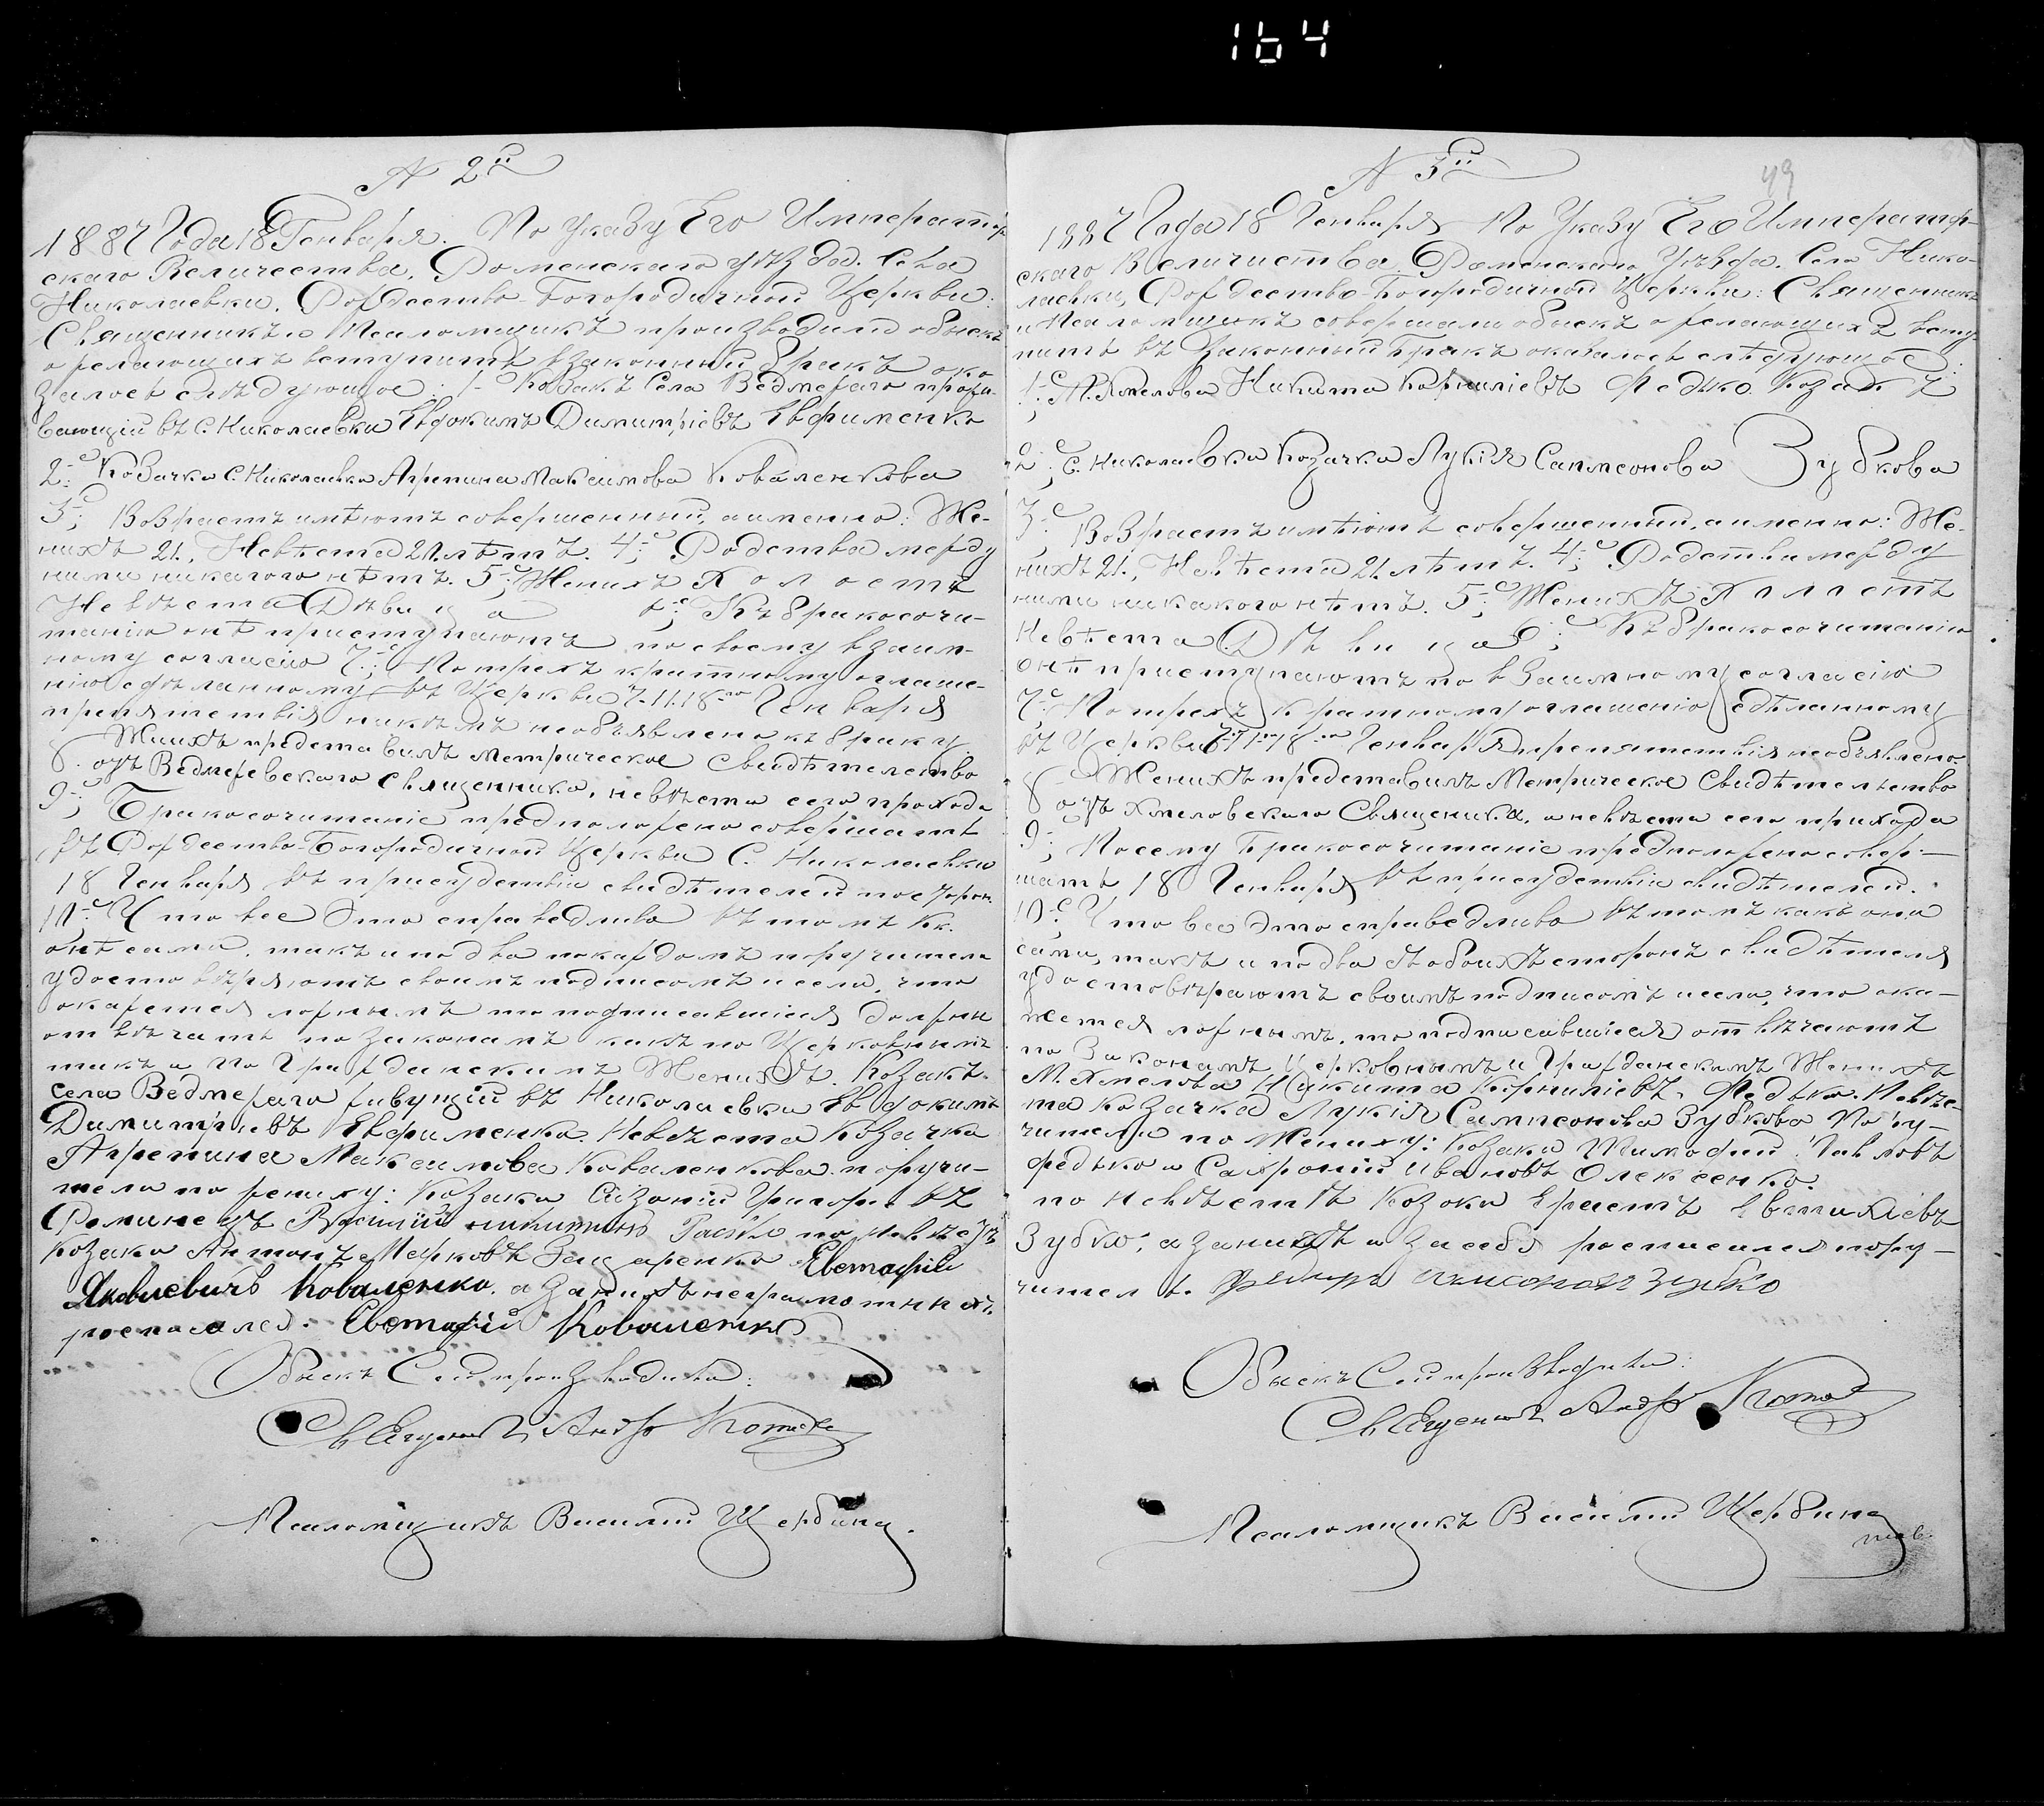 164
N 2й
1887 Года 18 Генваря. По Указу Его Император
скаго Величества, Роменскаго уѣзда. Села
Николаевки, Рождество-Богородичной Церкви:
Священникъ и Псаломщикъ производили обыскъ
о желающихъ вступить въ законный бракъ ока
залось слѣдующое: 1. Козакъ Села Ведмежаго прожи-
вающій въ С. Николаевки Евдокимъ Димитріевъ Ефименко
2. Козачка С. Николаевки Агрепина Максимова Коваленкова
3. Возрастъ имѣютъ совершенный, а именно: Же-
нихъ 21., Невѣста 21. лѣтъ. 4. Родства между
ними никагого нѣтъ. 5. Женихъ Холостъ
Невѣста Дѣвица 6. Къ бракосочи-
танію онѣ приступаютъ по своему взаим-
ному согласію 7. По трехъ кратному оглаше-
нію сдѣланному въ Церкви 7. 11. 18го Генваря
препятствія никѣмъ необъявлено къ браку.
8. Женихъ представилъ Метрическое свидѣтелство
отъ Ведмежевскаго Священника, невѣста сего прихода
9. Бракосочитаніе предположено совершать
въ Рождество-Богородичной Церкви С. Николаевки
18 Генваря въ присудствіи свидѣтелей посторон.
10. Что все Это справедливо въ томъ кк.
онѣ сами, такъ и по два по каждомъ поручителя
удостовѣряютъ своимъ подписомъ и если, что
окажется ложнымъ то подписавшіися должны
отвѣчать по законамъ какъ по Церковнимъ
такъ и по Гражданскимъ Женихъ. Козакъ.
села Ведмежаго живущій въ Николаевки Евдокимъ
Димитріевъ Ефименко. Невѣста Козачка
Агрепина Максимова Коваленкова. поручи-
тели по жениху: Козаки Сизоній Григор. въ
Роминецъ по невѣстѣ
Козаки Антонъ Марковъ Евстафій
Яковлевичъ Коваленко, а за нихъ неграмотныхъ
росписался. Евстафій Коваленко
Обыскъ Сей производили:
Священникъ Андр.
Псаломщикъ Василій Щербина.
N 3й
49
1887 Года 18 Генваря По Указу Его Император-
скаго Величиства Роменскаго Уѣзда. Села Нико-
лаевки, Рождество-Богородичной Церкви: Священникъ
и Псаломщикъ совершали обыскъ о желающихъ всту-
пить въ Законный бракъ оказалось слѣдующое:
1. М. Хмелова Никита Корниліевъ Федько. Козакъ
2. С. Николаевки Козачка Лукія Сампсонова Зубкова
3. Возрастъ имѣютъ совершенный, а именно: Же-
нихъ 21., Невѣста 21. лѣтъ. 4. Родства между
ними никакого нѣтъ. 5. Женихъ Холостъ
Невѣста Дѣвица 6. Къ бракосочитанію
онѣ приступаютъ по взаимному согласію
7. По трехъ кратному оглашенію сдѣланному
въ Церкви Генваря препятствія необъявлено
8. Женихъ представилъ Метрическое Свидѣтельство
отъ Хмеловскаго Священика, а невѣста сего прихода
9. Посему Бракосочитаніе предположено совер-
шать 18 Генваря въ присудствіи свидѣтелей.
10. Что все Это справедливо въ томъ какъ они
сами, такъ и по два съ обоихъ сторонъ свидѣтеля
удостовѣраютъ своимъ подписомъ и если, что ока-
жется ложнымъ, то подписавшіися отвѣчаютъ
по Законамъ Церковнымъ и Гражданскимъ Женихъ
М. Хмелова Никита Корниліевъ, Федько. Невѣс-
та Козачка Лукія Сампсонова Зубкова Пору-
чители по Жениху: Козаки Тимофій Павловъ
Федько и Сафроній Ивановъ Олексенко.
по невѣстѣ Козоки Ерастъ Евтихіевъ
Зубко, а за нихъ и за себя росписался пору-
чител ь. Федиръ Зубко
Обыскъ Сей производили:
Священникъ Андр.
Псаломщикъ Василій Щербина